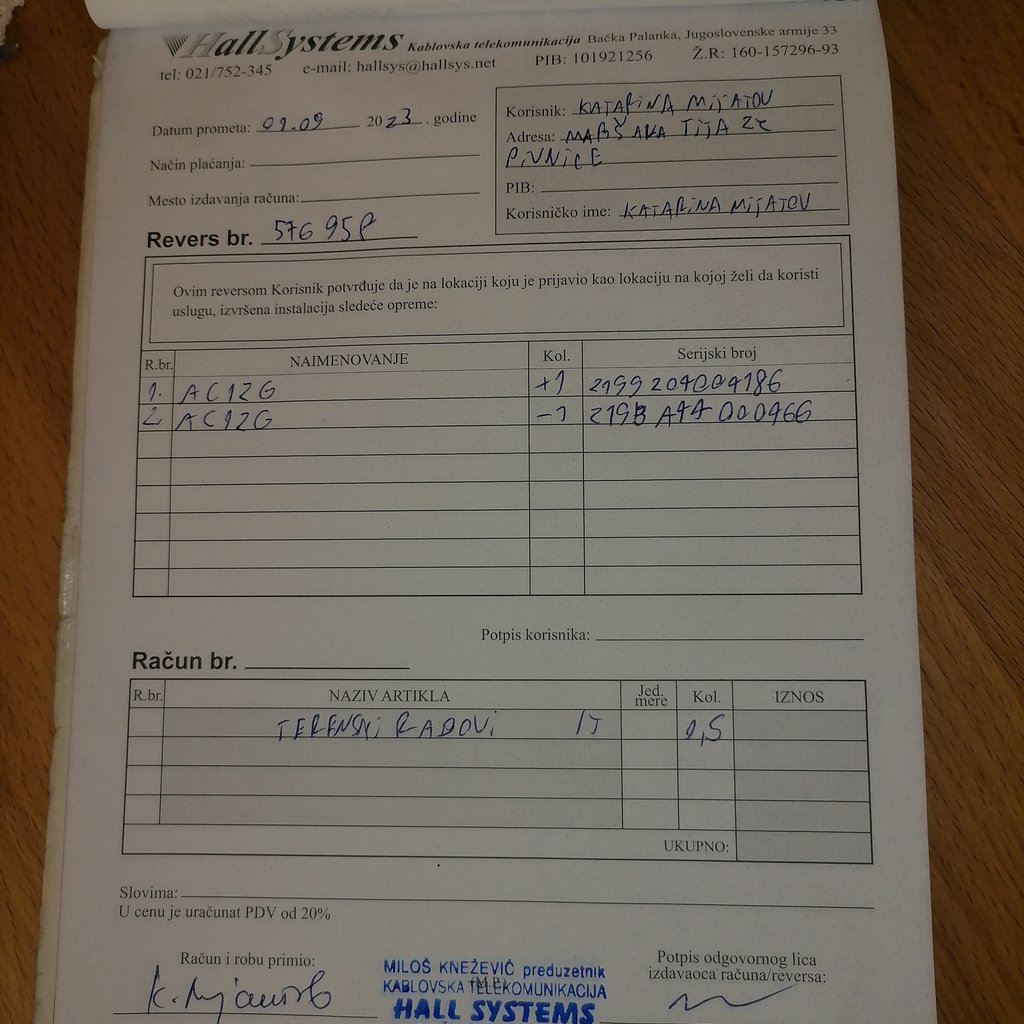 HallSystems Kablovska telekomunikacija Bačka Palanka, Jugoslovenske armije 33
tel: 021/752-345 e-mail: hallsys@hallsys.net PIB: 101921256 Ž.R: 160-157296-93
Datum prometa: 01.09 2023. godine
Način plaćanja:
Mesto izdavanja računa:
Revers br. 576 95P
Korisnik: KATARINA MIJATOV
Adresa: MARŠALA TITA
PIVNICE
PIB:
Korisničko ime: KATARINA MIJATOV
Ovim reversom Korisnik potvrđuje da je na lokaciji koju je prijavio kao lokaciju na kojoj želi da koristi
uslugu, izvršena instalacija sledeće opreme:
R.br. NAIMENOVANJE Kol. Serijski broj
1. AC12G +1
2. AC12G -1
Potpis korisnika:
Račun br.
R.br. NAZIV ARTIKLA Jed. mere Kol. IZNOS
TERENSKI RADOVI IT 0,5
UKUPNO:
Slovima:
U cenu je uračunat PDV od 20%
Račun i robu primio:
K. Mijatov
MILOŠ KNEŽEVIĆ preduzetnik
(M.P.)
KABLOVSKA TELEKOMUNIKACIJA
HALL SYSTEMS
Potpis odgovornog lica
izdavaoca računa/reversa: